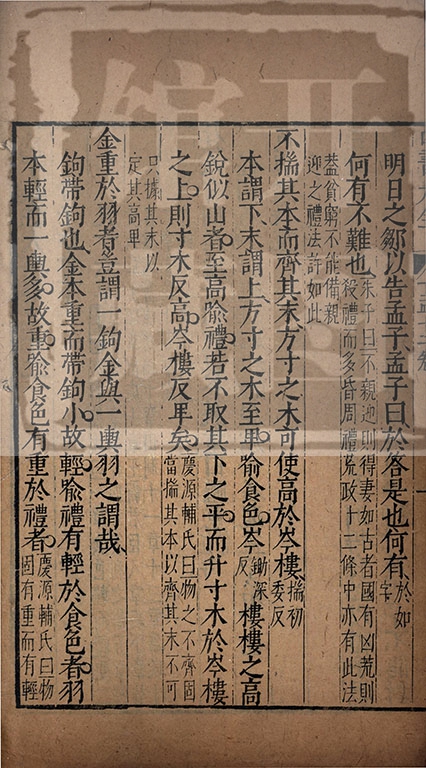 明日之鄒以告孟子孟子曰於荅是也何有於如字
何有不難也朱子曰不親迎則得妻如古者國有凶荒則殺禮而多昏周禮荒政十二條中亦有此法
蓋貧窮不能備親迎之禮法許如此
不揣其本而齊其末方寸之木可使高於岑樓揣初委反
本謂下末謂上方寸之木至卑喻食色岑鋤深反樓樓之高
銳似山者至高喻禮若不取其下之平而升寸木於岑樓
之上則寸木反高岑樓反卑矣慶源輔氏曰物之不齊固當揣其本以齊其末不可
只據其末以定其高卑
金重於羽者豈謂一鉤金與一輿羽之謂哉
鉤帶鉤也金本重而帶鉤小故輕喻禮有輕於食色者羽
本輕而一輿多故重喻食色有重於禮者慶源輔氏曰物固有重而有輕